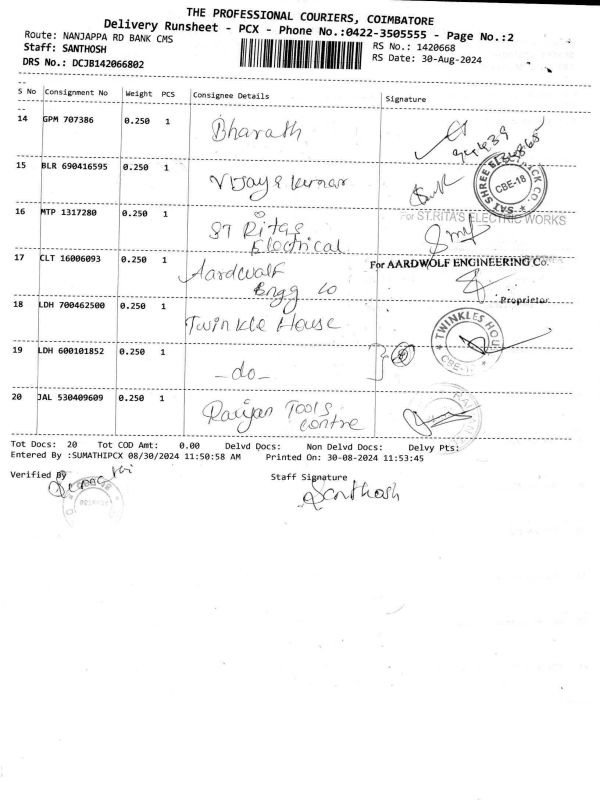 THE PROFESSIONAL COURIERS, COIMBATORE
Delivery Runsheet - PCX - Phone No.:0422-3505555 - Page No.:2
Route: NANJAPPA RD BANK CMS
RS No.: 1420668
Staff: SANTHOSH
RS Date: 30-Aug-2024
DRS No.: DCJB142066802
S No Consignment No Weight PCS Consignee Details Signature
14 GPM 707386 0.250 1 Bharath
15 BLR 690416595 0.250 1 Vijay & Kumar
SAT SHREE ELECTRICK CO. CBE-18
16 MTP 1317280 0.250 1 ST Ritas
Electrical
For ST.RITA'S ELECTRIC WORKS
17 CLT 16006093 0.250 1 Aardwolf
Engg Co
For AARDWOLF ENGINEERING Co.
Proprietor
18 LDH 700462500 0.250 1 Twinkle House
TWINKLES HOU
19 LDH 600101852 0.250 1 -do-
20 JAL 530409609 0.250 1 Tools
Centre
Tot Docs: 20 Tot COD Amt: 0.00 Delvd Docs: Non Delvd Docs: Delvy Pts:
Entered By :SUMATHIPCX 08/30/2024 11:50:58 AM Printed On: 30-08-2024 11:53:45
Verified By Staff Signature
Santhosh